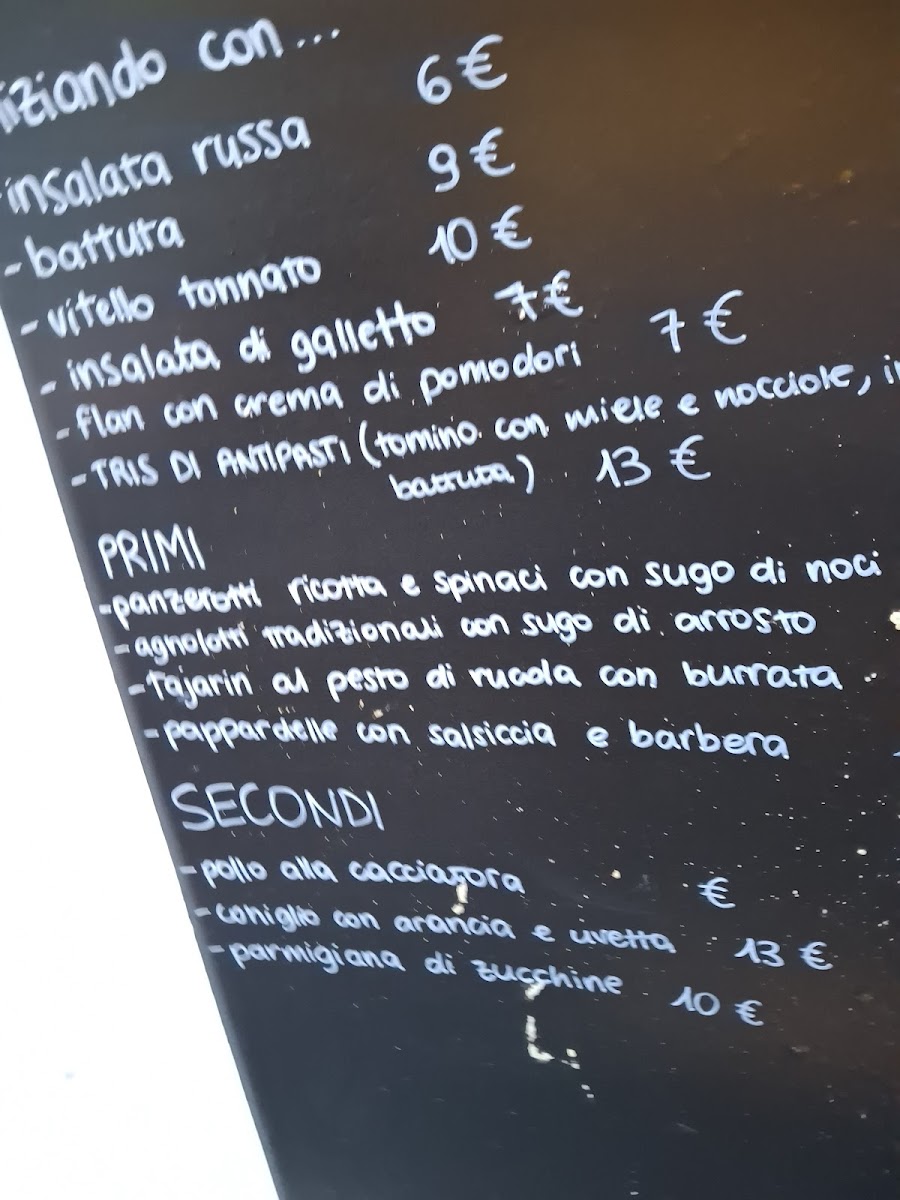 iziando con...
-insalata russa 6€
-battuta 9€
-vitello tonnato 10€
-insalata di galletto 7€
-flan con crema di pomodori 7€
-TRIS DI ANTIPASTI (tomino con miele e nocciole,
battuta) 13€
PRIMI
-panzerotti ricotta e spinaci con sugo di noci
-agnolotti tradizionali con sugo di arrosto
-tajarin al pesto di rucola con burrata
-pappardelle con salsiccia e barbera
SECONDI
-pollo alla cacciatora €
-coniglio con arancia e uvetta 13€
-parmigiana di zucchine 10€